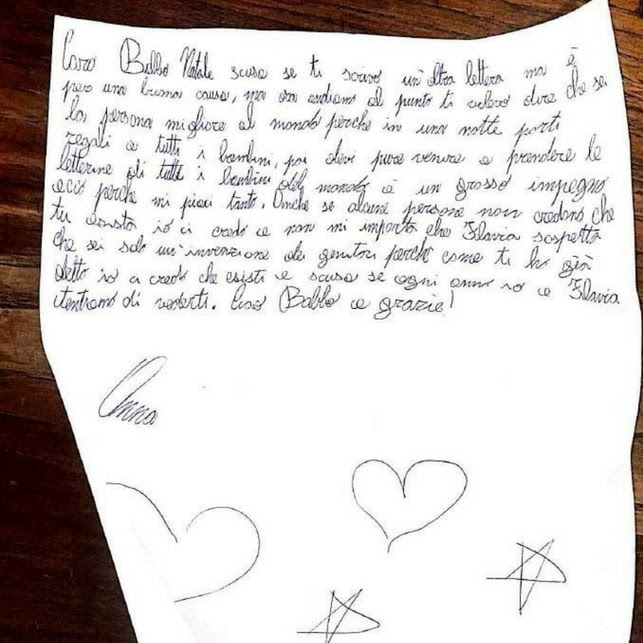 Caro Babbo Natale scusa se ti scrivo un'altra lettera ma è
per una buona causa, ma ora andiamo al punto ti volevo dire che sei
la persona migliore al mondo perche in una notte porti
regali a tutti i bambini, poi devi pure venire a prendere le
letterine di tutti i bambini del mondo è un grosso impegno
ecio perche mi piaci tanto. Anche se alcune persone non credono che
tu esista io ci credo e non mi importa che Flavia sospetta
che sei solo un'invenzione dei genitori perché come ti ho già
detto io ci credo che esisti e scusa se ogni anno io e Flavia
tentiamo di vederti. Ciao Babbo e grazie!
Anna